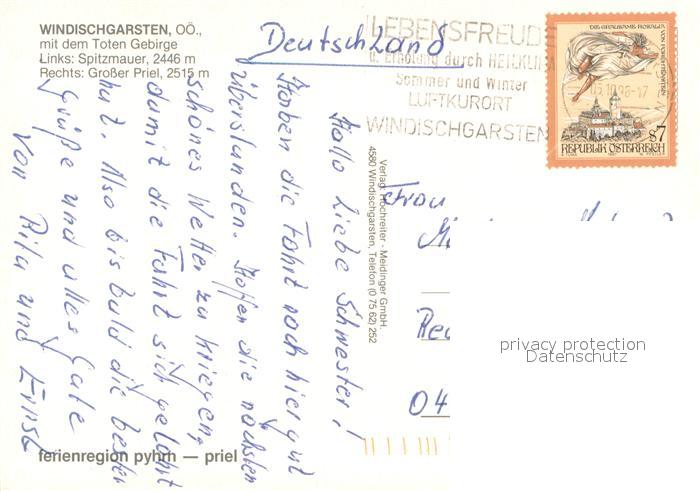 WINDISCHGARSTEN, OÖ.,
mit dem Toten Gebirge
Links: Spitzmauer, 2446 m
Rechts: Großer Priel, 2515 m
Deutschland
LEBENSFREUDE
u. Erholung durch HEILKLIMA
Sommer und Winter
LUFTKURORT
WINDISCHGARSTEN
DIE GRAUSAME ROSALIA
VON FORCHTENSTEIN
05.10.98-17
S7
REPUBLIK ÖSTERREICH
Hallo liebe Schwester!
Haben die Fahrt nach hier gut
überstanden. Hoffen die nächsten
schönes Wetter zu kriegen,
damit die Fahrt sich gelohnt
hat. Also bis bald die besten
Grüße und alles Gute
von Rita und Ernst
Verlag Hochreiter - Meidinger GmbH.
4580 Windischgarsten, Telefon (0 75 62) 252
Frau
04
privacy protection
Datenschutz
ferienregion pyhrn — priel